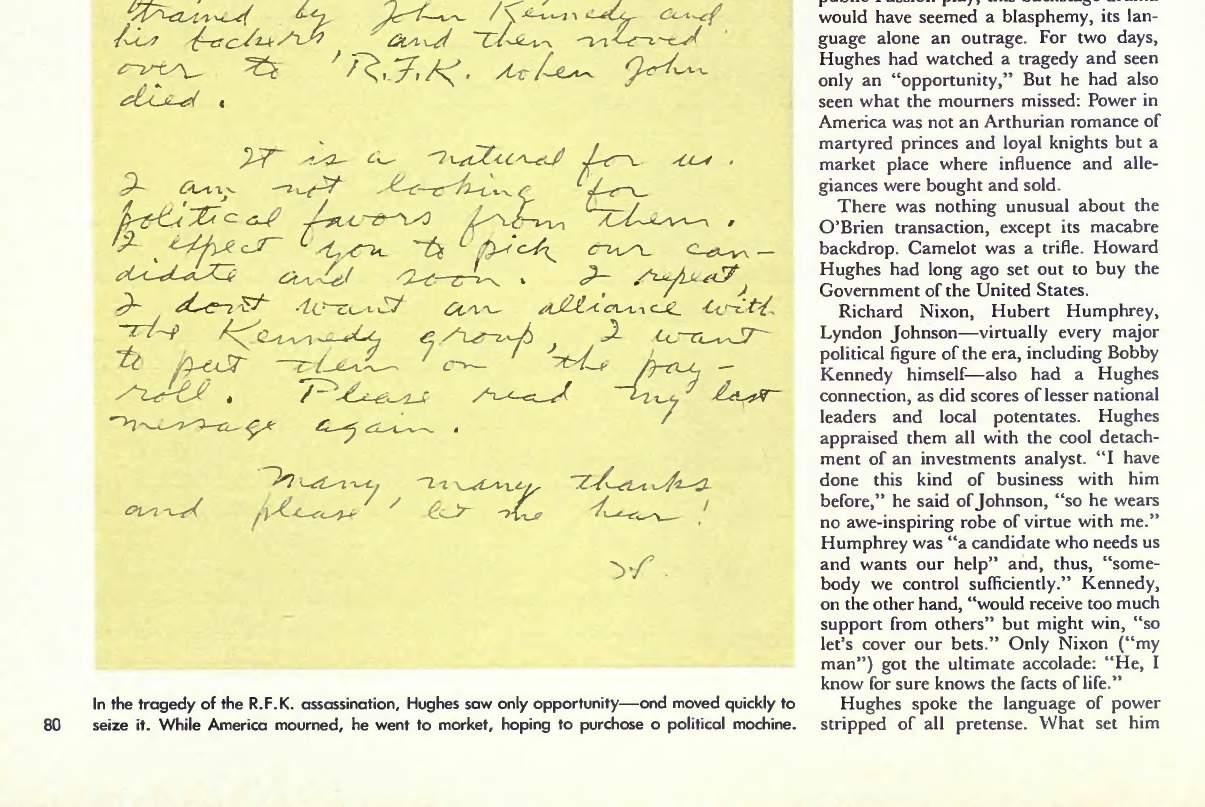 trained by John Kennedy and
his backers, and then moved
over to R.F.K. when John
died.
It is a natural for us.
I am not looking for
political favors from them.
I expect you to pick our can-
didate and soon. I repeat,
I dont want an alliance with
the Kennedy group, I want
to put them on the pay-
roll. Please read my last
message again.
Many many thanks
and please let me hear!
In the tragedy of the R.F.K. assassination, Hughes saw only opportunity—ond moved quickly to
80 seize it. While America mourned, he went to morket, hoping to purchose o political mochine.
would have seemed a blasphemy, its lan-
guage alone an outrage. For two days,
Hughes had watched a tragedy and seen
only an “opportunity,” But he had also
seen what the mourners missed: Power in
America was not an Arthurian romance of
martyred princes and loyal knights but a
market place where influence and alle-
giances were bought and sold.
There was nothing unusual about the
O’Brien transaction, except its macabre
backdrop. Camelot was a trifle. Howard
Hughes had long ago set out to buy the
Government of the United States.
Richard Nixon, Hubert Humphrey,
Lyndon Johnson—virtually every major
political figure of the era, including Bobby
Kennedy himself—also had a Hughes
connection, as did scores of lesser national
leaders and local potentates. Hughes
appraised them all with the cool detach-
ment of an investments analyst. “I have
done this kind of business with him
before,” he said of Johnson, “so he wears
no awe-inspiring robe of virtue with me.”
Humphrey was “a candidate who needs us
and wants our help” and, thus, “some-
body we control sufficiently.” Kennedy,
on the other hand, “would receive too much
support from others” but might win, “so
let’s cover our bets.” Only Nixon (“my
man”) got the ultimate accolade: “He, I
know for sure knows the facts of life.”
Hughes spoke the language of power
stripped of all pretense. What set him